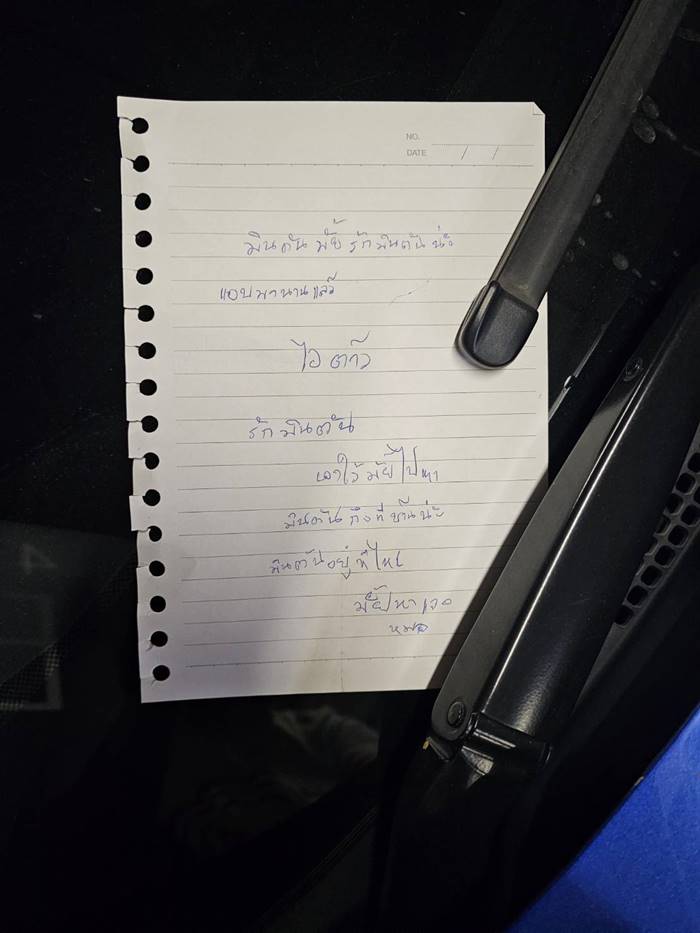 NO.
DATE / /
มินตัน มั้ย รักมินตันน่ะ
แอบมานานแล้ว
ไอต้าว
รักมินตัน
เอาไว้มั้ยไปหา
มินตันถึงที่บ้านน่ะ
มินตันอยู่ที่ไหน
มั้ยหาเจอ
หมด